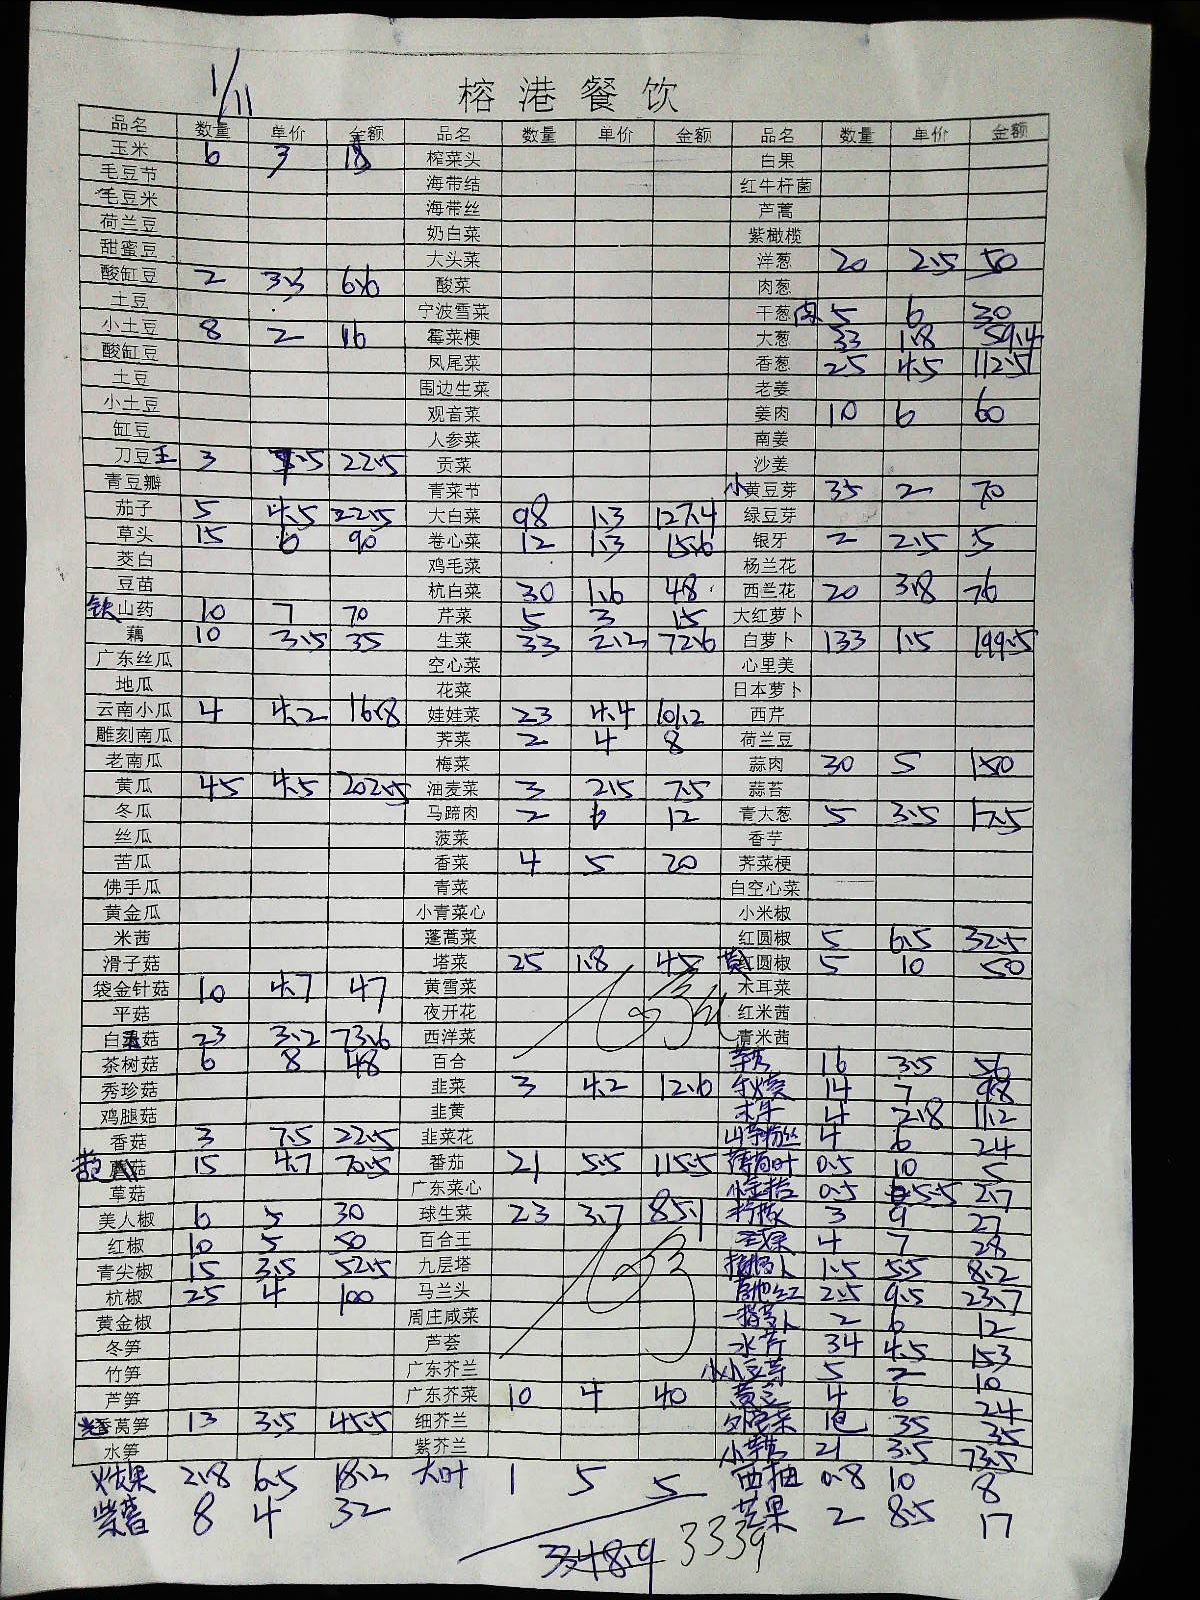 1/11
榕港餐饮
品名 数量 单价 金额 品名 数量 单价 金额 品名 数量 单价 金额
玉米 6 3 18 榨菜头 白果
毛豆节 海带结 红牛杆菌
毛豆米 海带丝 芦蒿
荷兰豆 奶白菜 紫橄榄
甜蜜豆 大头菜 洋葱 20 2.5 50
酸缸豆 2 3.3 6.6 酸菜 肉葱
土豆 宁波雪菜 干葱肉 5 6 30
小土豆 8 2 16 霉菜梗 大葱 33 1.8 59.4
酸缸豆 凤尾菜 香葱 25 4.5 112.5
土豆 围边生菜 老姜
小土豆 观音菜 姜肉 10 6 60
缸豆 人参菜 南姜
刀豆王 3 7.5 22.5 贡菜 沙姜
青豆瓣 青菜节 小黄豆芽 35 2 70
茄子 5 4.5 22.5 大白菜 98 1.3 127.4 绿豆芽
草头 15 6 90 卷心菜 12 1.3 15.6 银牙 2 2.5 5
茭白 鸡毛菜 杨兰花
豆苗 杭白菜 30 1.6 48 西兰花 20 3.8 76
铁山药 10 7 70 芹菜 5 3 15 大红萝卜
藕 10 3.5 35 生菜 33 2.2 72.6 白萝卜 133 1.5 199.5
广东丝瓜 空心菜 心里美
地瓜 花菜 日本萝卜
云南小瓜 4 4.2 16.8 娃娃菜 23 4.4 101.2 西芹
雕刻南瓜 荠菜 2 4 8 荷兰豆
老南瓜 梅菜 蒜肉 30 5 150
黄瓜 45 4.5 202.5 油麦菜 3 2.5 7.5 蒜苔
冬瓜 马蹄肉 2 6 12 青大葱 5 3.5 17.5
丝瓜 菠菜 香芋
苦瓜 香菜 4 5 20 荠菜梗
佛手瓜 青菜 白空心菜
黄金瓜 小青菜心 小米椒
米茜 蓬蒿菜 红圆椒 5 6.5 32.5
滑子菇 塔菜 25 1.8 45 黄圆椒 5 10 50
袋金针菇 10 4.7 47 黄雪菜 木耳菜
平菇 夜开花 红米茜
白玉菇 23 3.2 73.6 西洋菜 青米茜
茶树菇 6 8 48 百合 16 3.5 56
秀珍菇 韭菜 3 4.2 12.6 14 7 98
鸡腿菇 韭黄 4 2.8 11.2
香菇 3 7.5 22.5 韭菜花 山芋粉丝 4 6 24
菇 15 4.7 70.5 番茄 21 5.5 115.5 薄荷叶 0.5 10 5
草菇 广东菜心 小金桔 0.5 5.5 2.7
美人椒 6 5 30 球生菜 23 3.7 85.1 3 9 27
红椒 10 5 50 百合王 4 7 28
青尖椒 15 3.5 52.5 九层塔 1.5 5.5 8.2
杭椒 25 4 100 马兰头 2.5 9.5 23.7
黄金椒 周庄咸菜 2 6 12
冬笋 芦荟 水芹 34 4.5 153
竹笋 广东芥兰 小豆芽 5 2 10
芦笋 广东芥菜 10 4 40 黄豆 4 6 24
香莴笋 13 3.5 45.5 细芥兰 1包 35 35
水笋 紫芥兰 小芋艿 21 3.5 73.5
火龙果 2.8 6.5 18.2 大叶 1 5 5 西抽 0.8 10 8
紫薯 8 4 32 芒果 2 8.5 17
3348.9 3339